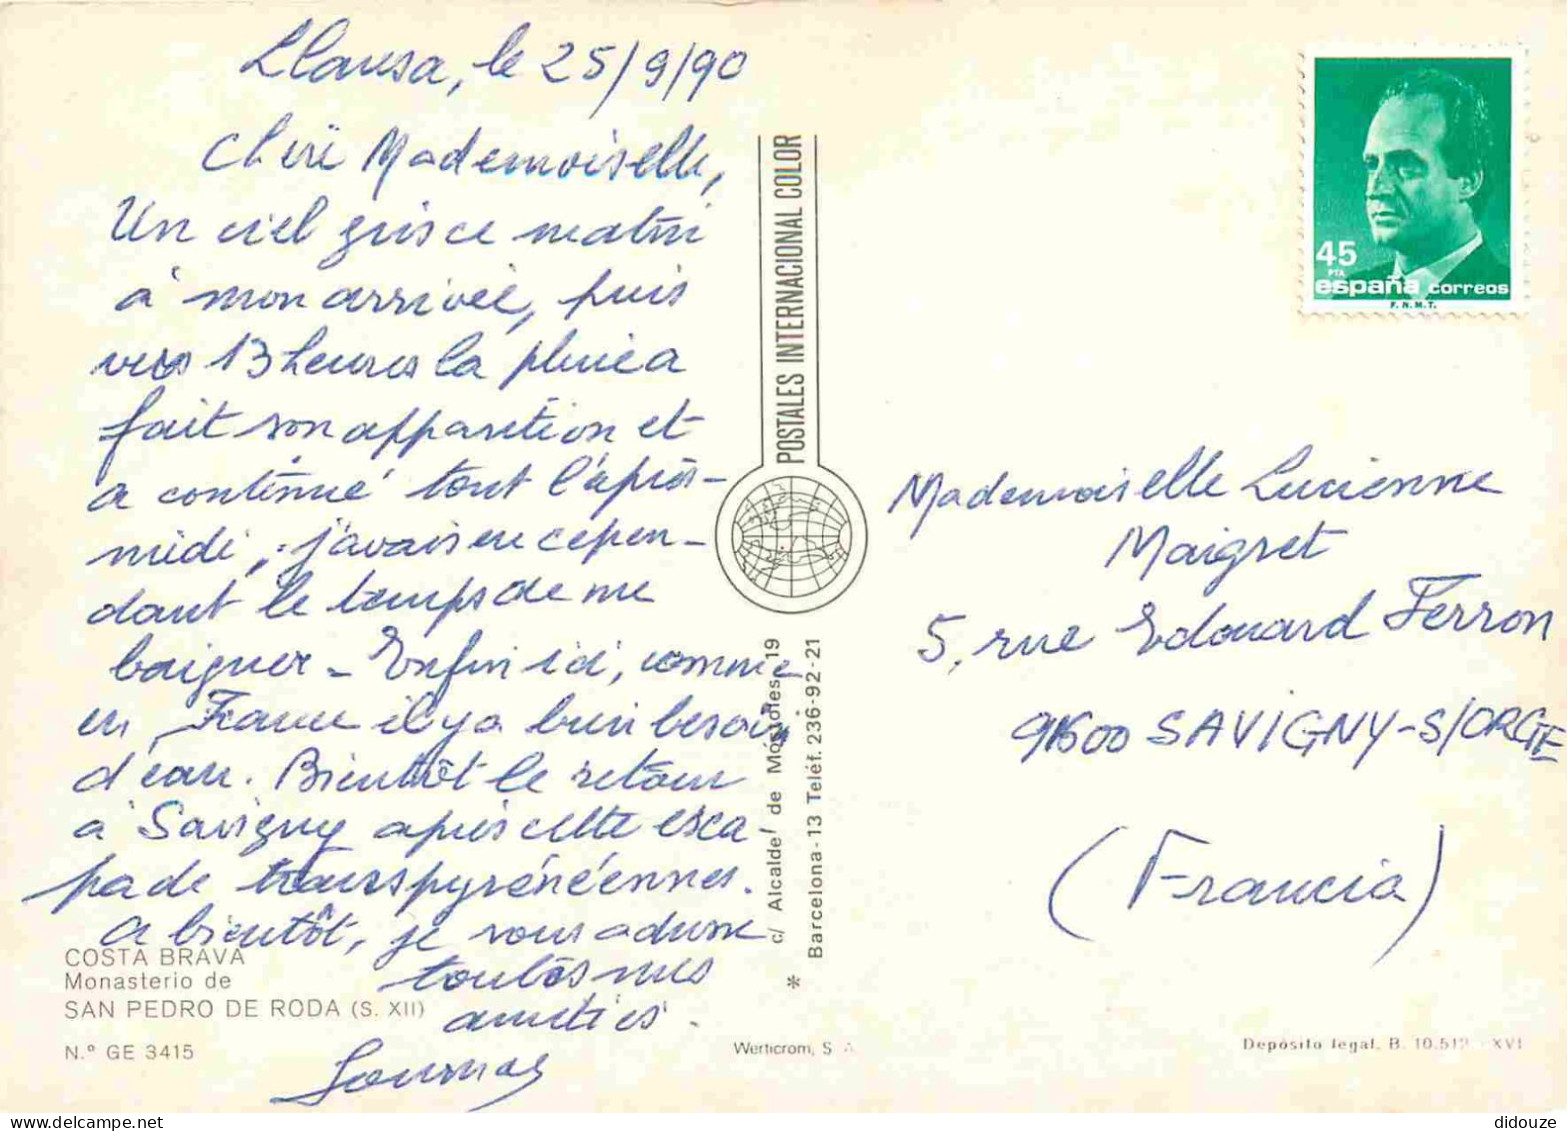 Llansa, le 25/9/90
Chère Mademoiselle,
Un ciel gris ce matin
à mon arrivée, puis
vers 13 heures la pluie a
fait son apparition et
a continué tout l'après-
midi, j'avais eu cepen-
dant le temps de me
baigner - Enfin ici, comme
en France il y a bien besoin
d'eau. Bientôt le retour
à Savigny après cette esca
pade transpyrénéennes.
A bientôt, je vous adresse
toutes mes
amitiés.
COSTA BRAVA
Monasterio de
SAN PEDRO DE RODA (S. XII)
N.º GE 3415
POSTALES INTERNACIONAL COLOR
c/ Alcalde de Móstoles, 19
Barcelona-13 Teléf. 236-92-21
*
Werticrom, S A
45
PTA
españa correos
F.N.M.T.
Mademoiselle Lucienne
Maigret
5, rue Edouard Ferron
91600 SAVIGNY-S/ORGE
(Francia)
Depósito legal, B. 10.512 - XVI
didouze